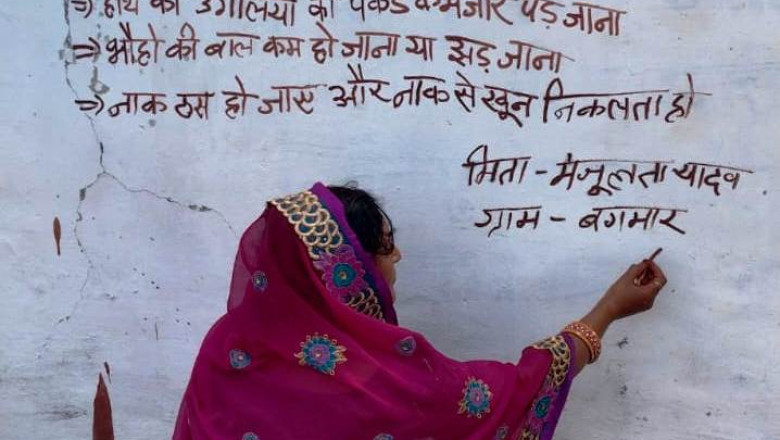 ⇒ हाथ की उंगलियों की पकड़ कमजोर पड़ जाना
⇒ भौहो की बाल कम हो जाना या झड़ जाना
⇒ नाक ठस हो जाए और नाक से खून निकलता हो
मिता - मंजूलता यादव
ग्राम - बगमार